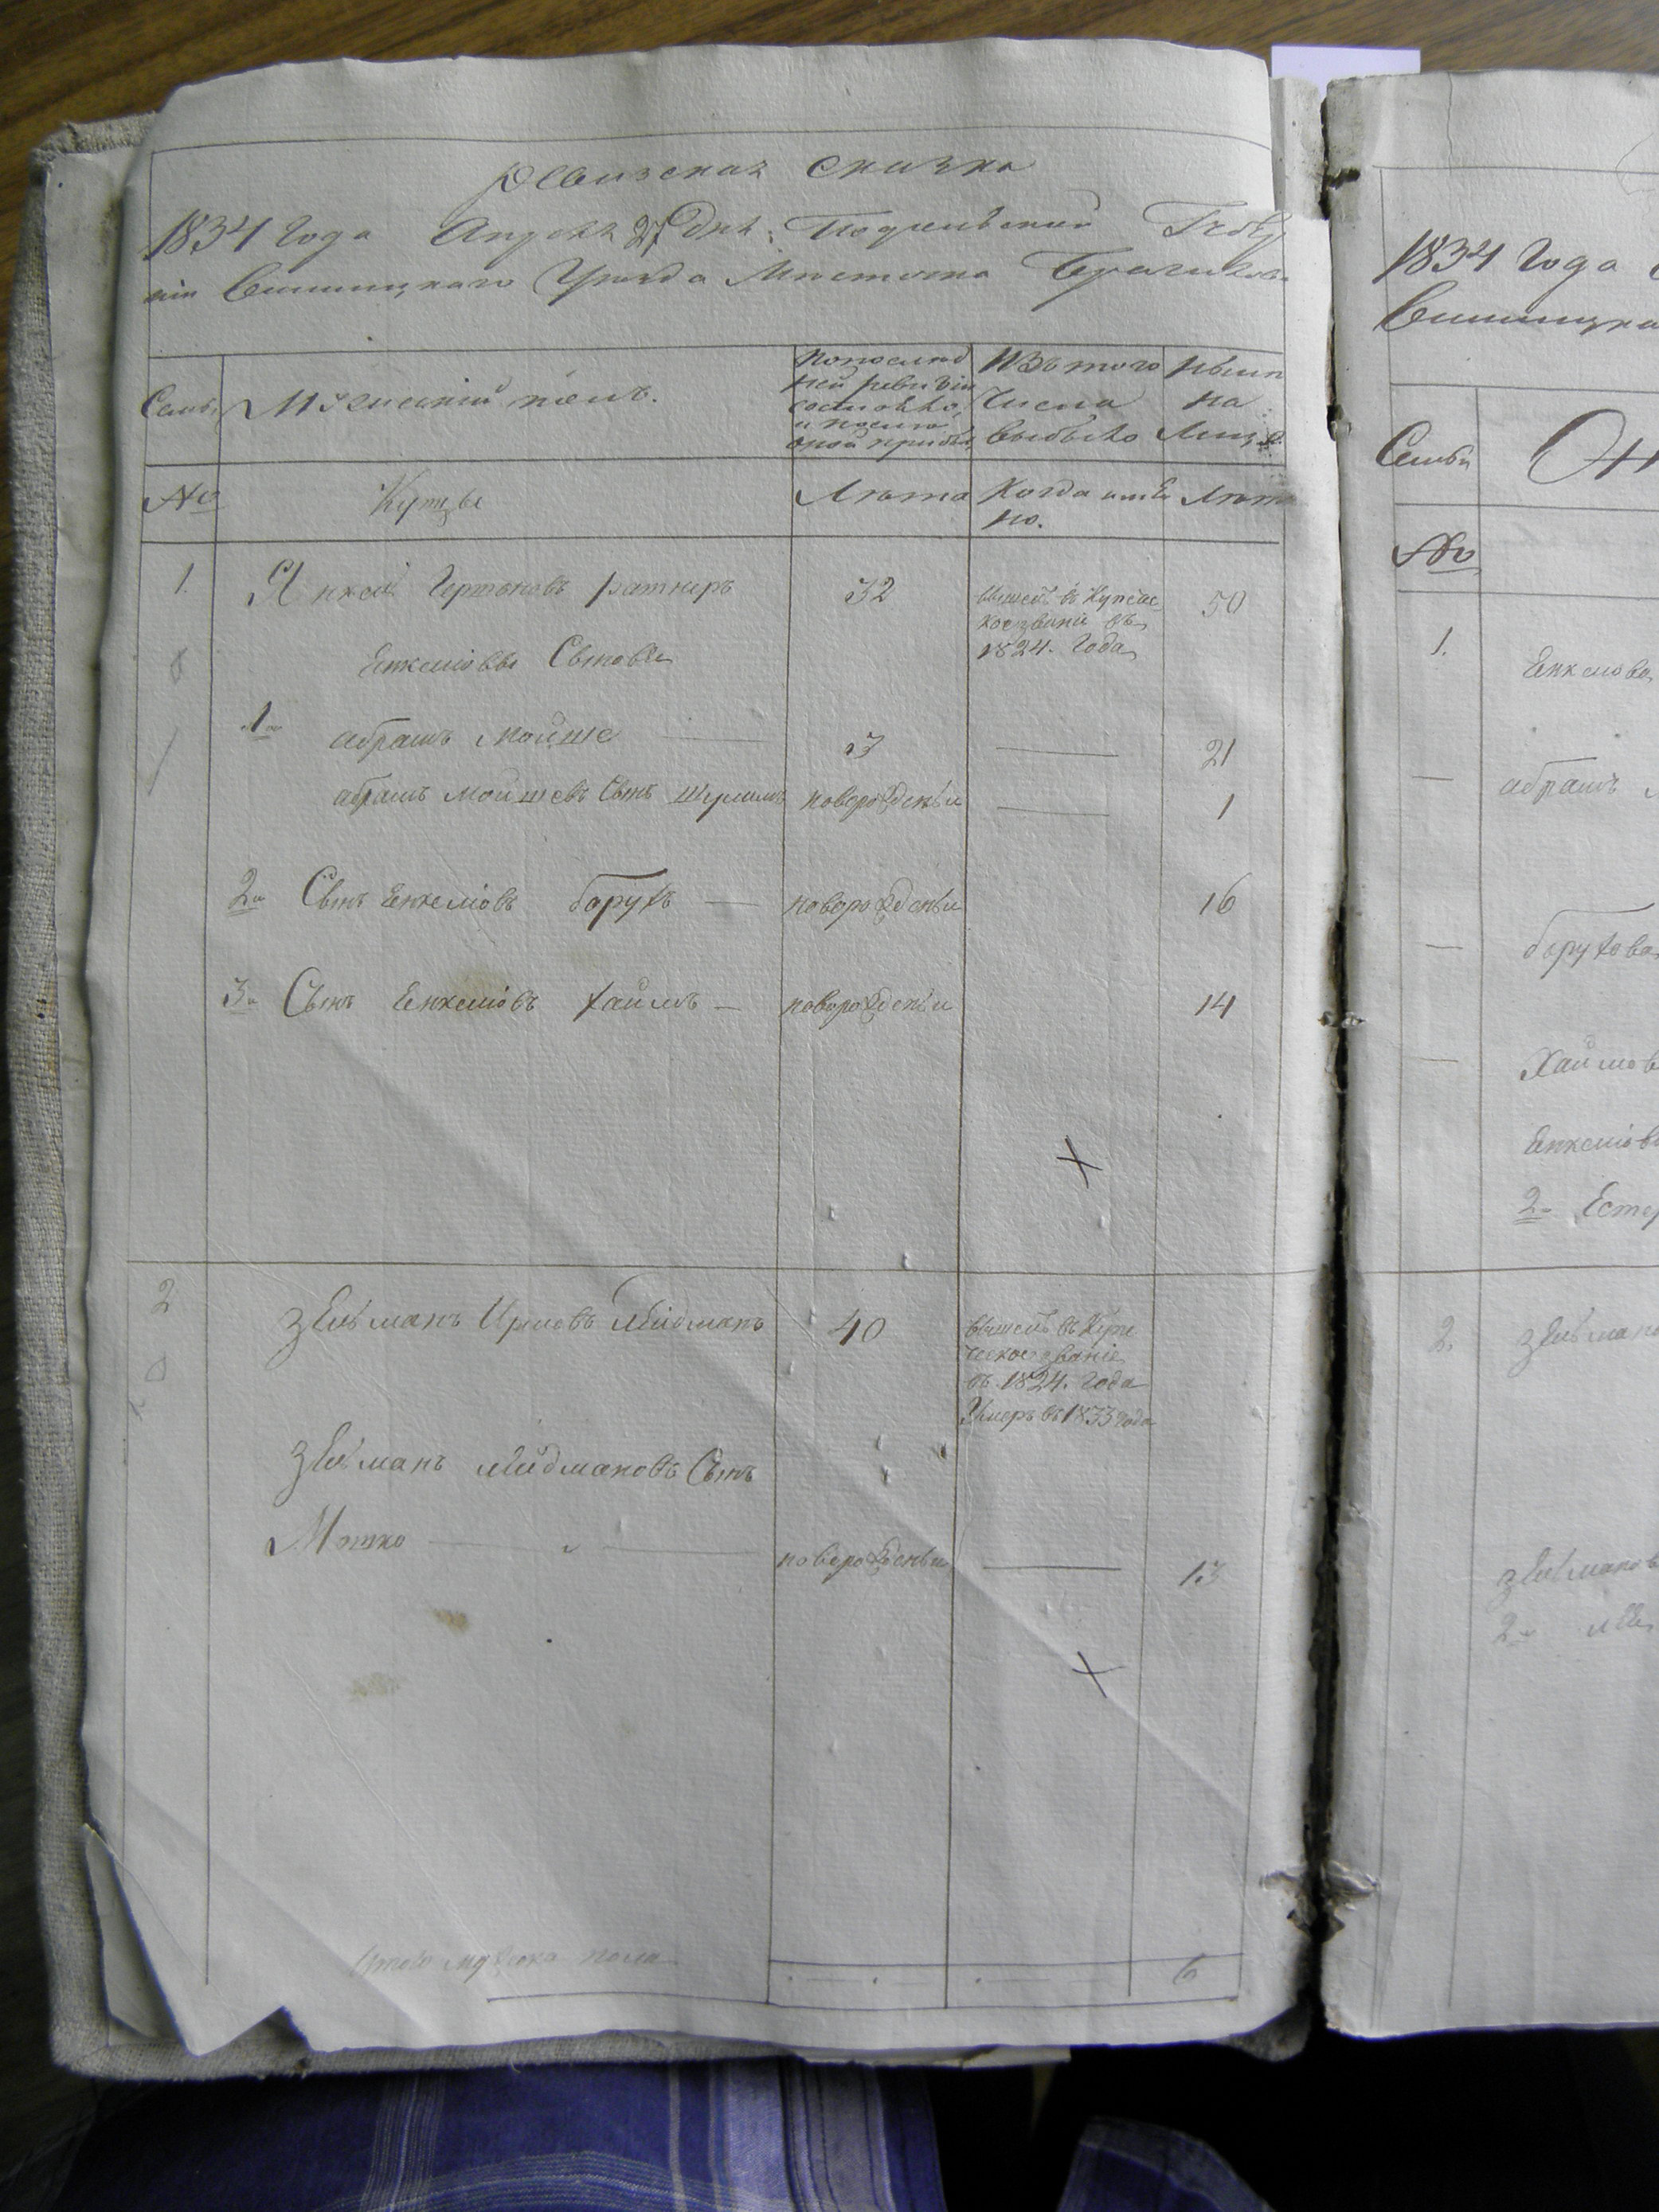 Ревизская сказка
1834 Года Апреля 27 Дня: Подольской Губер
ніи Винницкаго Уѣзда Мѣстечка Браилова
Семьи
Мужескій полъ.
По послѣд
ней ревизіи
состояло,
и после
оной прибы
Изъ того
Числа
выбыло
Нынѣ
на
Лицо
№
Купцы
Лѣта
Когда имен
но.
Лѣта
1.
Янкель ратнеръ
32
вышелъ въ Купечес
кое званіе въ
1824. Года
50
Енкеліовы Сыновья
1й
абрамъ Мойше
3
21
абрамъ Мойшевъ Сынъ
новорожденый
1
2й Сынъ Енкеліовъ борухъ
новорожденый
16
3й Сынъ Енкеліовъ хаимъ
новорожденый
14
2
Зельманъ
40
вышелъ въ Купе
ческое званіе
въ 1824. Года
Умеръ въ 1833 Года
Зельманъ Сынъ
Мошко
новорожденый
13
Итого мужеска пола
6
1834 Года
Винницка
Семьи
№
1.
Енкелова
абрамъ
борухова
Хаимов
Енкеліов
2я Естер
2.
Зельмано
Зельманов
2я